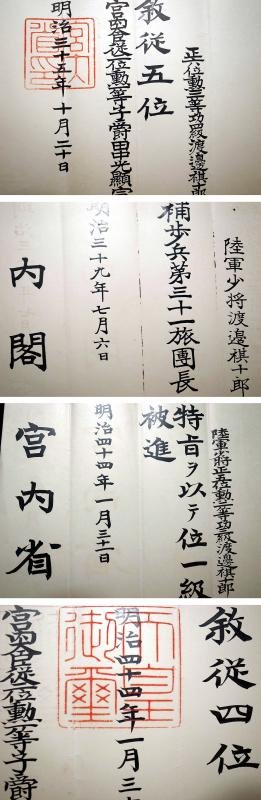 勲三等功級渡邊祺十郎
敘従五位
宮内大臣従二位勲一等子爵田中光顯宣
明治三十五年十月二十日
陸軍少将渡邊祺十郎
補歩兵第三十一旅團長
明治三十九年七月六日
内閣
陸軍少将正五位勲二等功三級渡邊祺十郎
特旨ヲ以テ位一級
被進
明治四十四年一月三十一日
宮内省
敘従四位
明治四十四年一月三
天皇御璽
宮内大臣従二位勲一等子爵